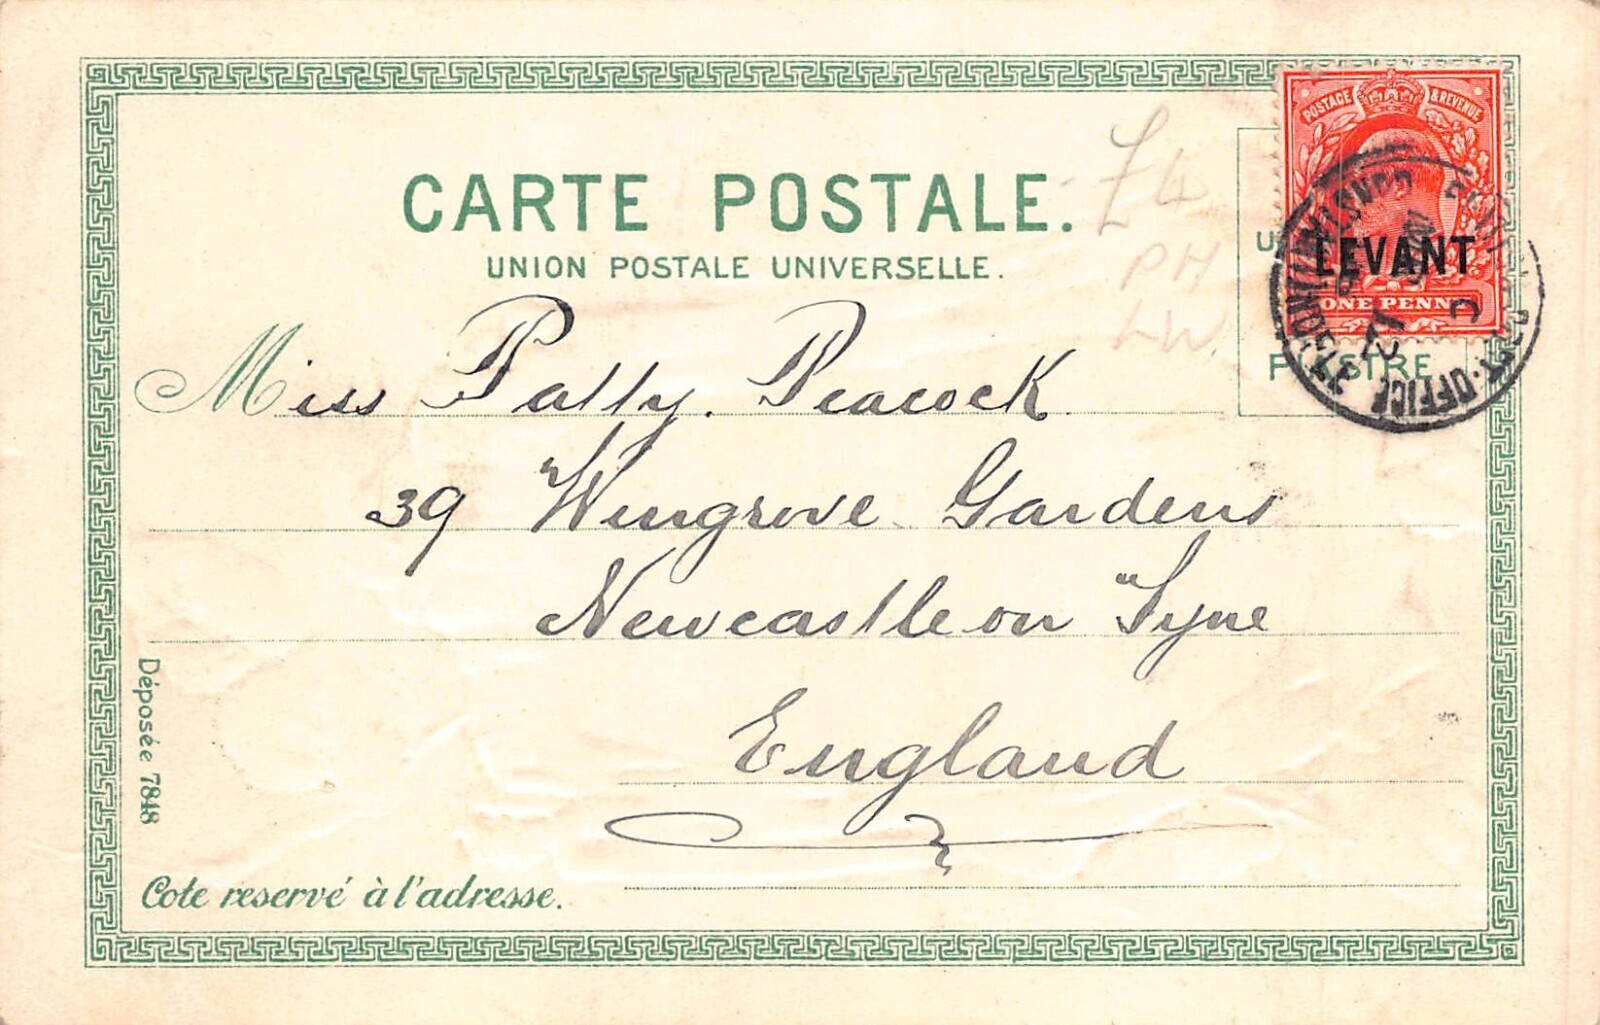 CARTE POSTALE.
UNION POSTALE UNIVERSELLE.
£4
PH
LW.
POSTAGE & REVENUE
LEVANT
ONE PENNY
BRITISH POST-OFFICE CONSTANTINOPLE
Miss Patty. Peacock
39 Wingrove Gardens
Newcastle on Tyne
England
Déposée 7848
Cote reservé à l'adresse.